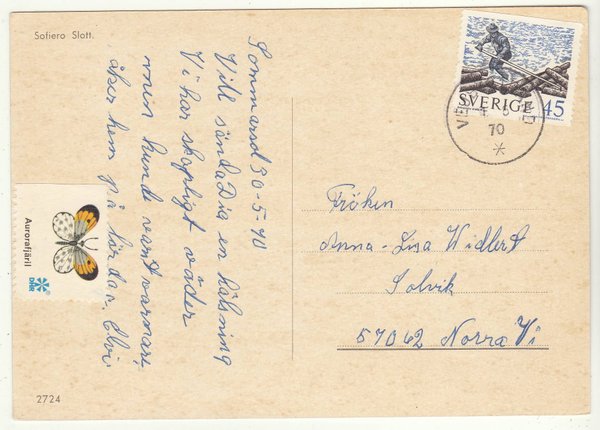 Sofiero Slott.
Sommarsol 30-5-70
Vill sända Dia en hälsning
Vi har skapligt väder
men kunde varit varmare,
åker hem på lördan. Elvi
Aurorafjäril
2724
SVERIGE 45
70
Fröken
Anna-Lisa Widlert
Solvik
57062 Norra Vi